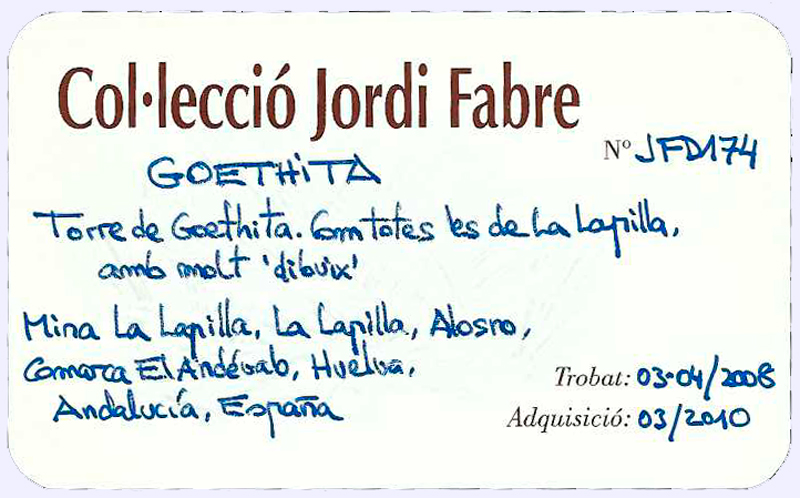 Col·lecció Jordi Fabre
Nº JFD174
GOETHITA
Torre de Goethita. Com totes les de La Lapilla,
amb molt 'dibuix'
Mina La Lapilla, La Lapilla, Alosno,
Comarca El Andévalo, Huelva,
Andalucía, España
Trobat: 03-04/2008
Adquisició: 03/2010